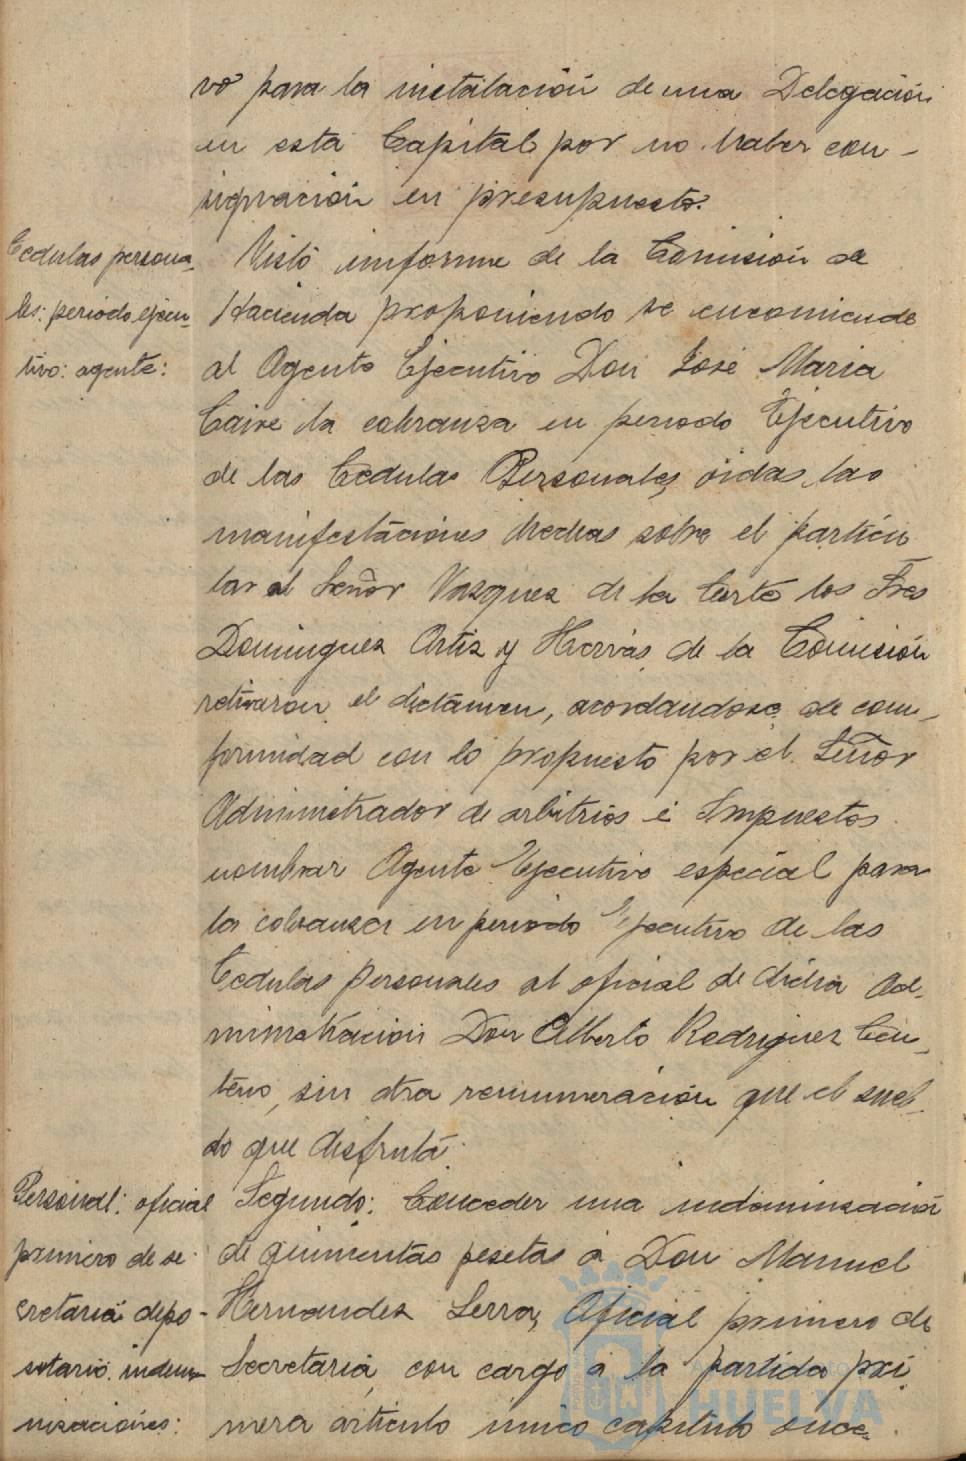 vo para la instalación de una Delegación
en esta Capital por no haber con-
signación en presupuesto.
Cedulas persona-
les: periodo ejecu-
tivo: agente:
Visto informe de la Comisión de
Hacienda proponiendo se encomiende
al Agente Ejecutivo Don José Maria
la cobranza en periodo Ejecutivo
de las Cedulas Personales, oidas las
manifestaciones hechas sobre el particu
lar al Señor Vazquez de la Corte los Sres
Dominguez Ortiz y Hervás de la Comisión
retiraron el dictámen, acordandose de con-
formidad con lo propuesto por el Señor
Administrador de arbitrios é Impuestos
nombrar Agente Ejecutivo especial para
la cobranza en periodo Ejecutivo de las
Cedulas personales al oficial de dicha Ad-
ministración Don Alberto Rodriguez Cen-
teno, sin otra remuneración que el suel-
do que disfruta.
Personal: oficial
primero de se
cretaria depo-
sitario indem-
nizaciones:
Segundo: Conceder una indeminzación
de quinientas pesetas á Don Manuel
Hernandez Serra, Oficial primero de
Secretaria, con cargo á la partida pri
mera articulo único capitulo once
HUELVA